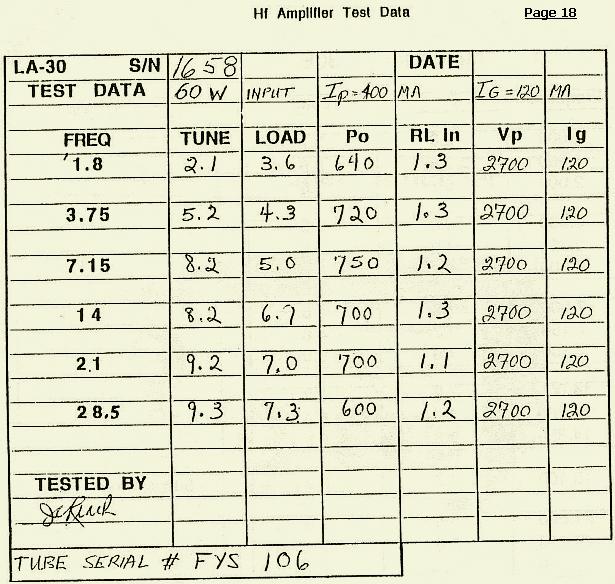 Hf Amplifier Test Data Page 18
LA-30 S/N 1658 DATE
TEST DATA 60 W INPUT Ip=400 MA IG=120 MA
FREQ TUNE LOAD Po RL In Vp Ig
1.8 2.1 3.6 640 1.3 2700 120
3.75 5.2 4.3 720 1.3 2700 120
7.15 8.2 5.0 750 1.2 2700 120
14 8.2 6.7 700 1.3 2700 120
2.1 9.2 7.0 700 1.1 2700 120
28.5 9.3 7.3 600 1.2 2700 120
TESTED BY
TUBE SERIAL # FYS 106